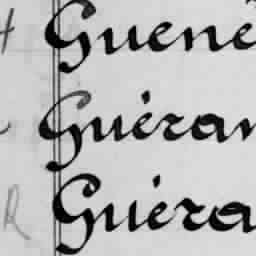 H Guene
Guéran
R Guéra